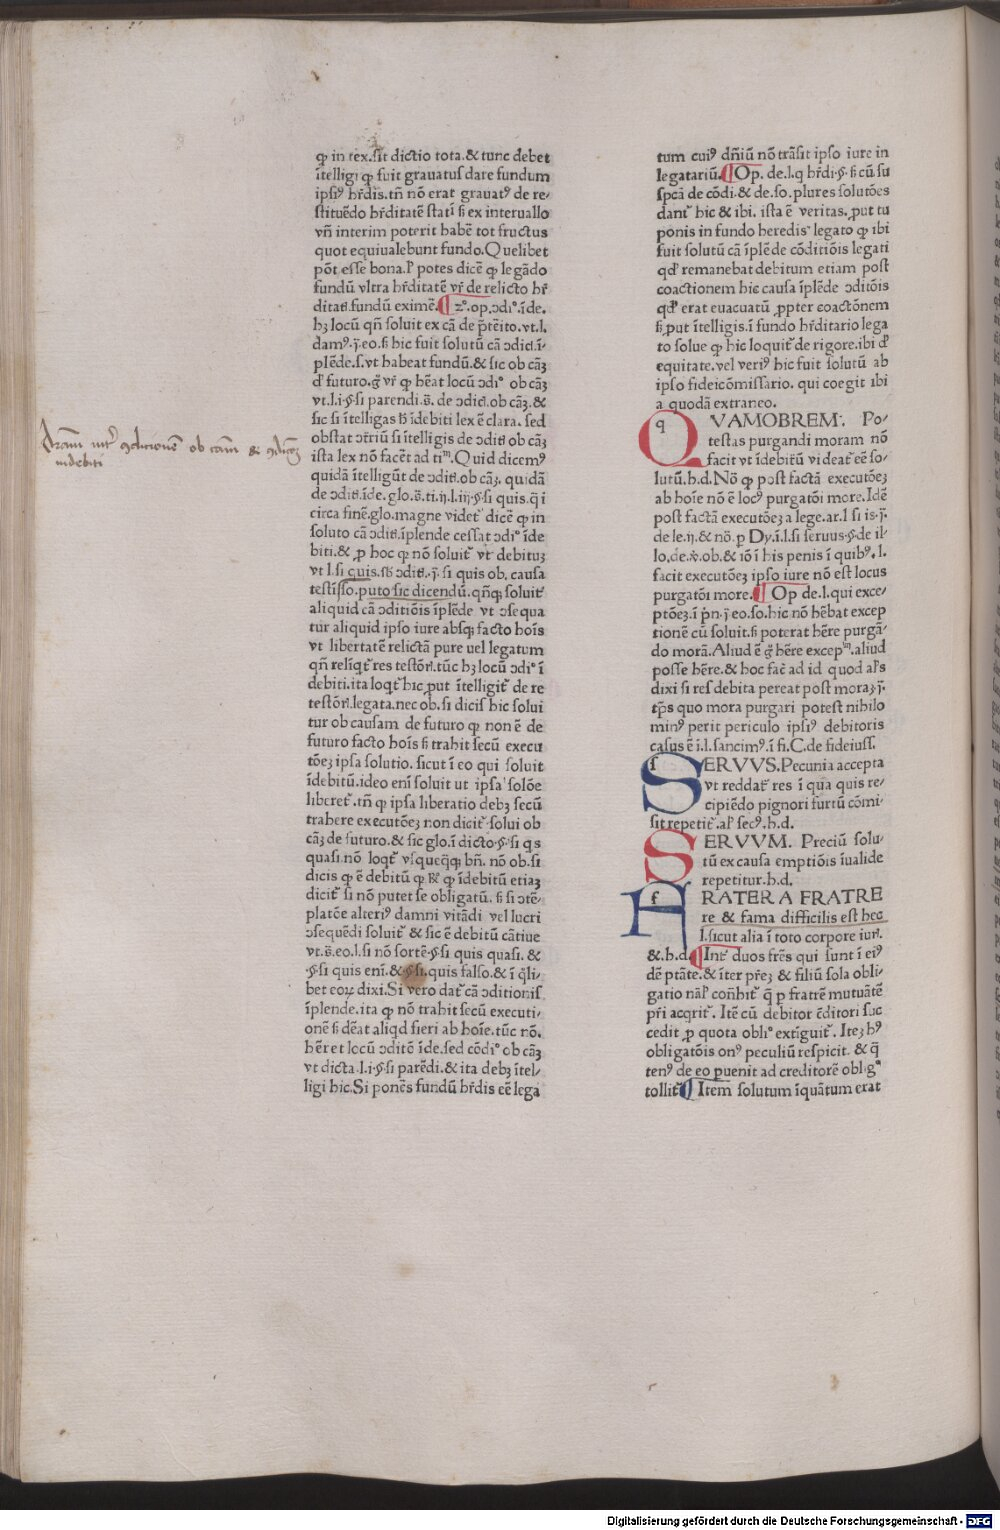 ꝙ in tex.sit dictio tota.& tunc debet
ītelligi ꝙ fuit grauatus dare fundum
ipsiꝰ hr̄dis.tn̄ nō erat grauatꝰ de re-
stituēdo hr̄ditatē statī sꝫ ex interuallo
vn̄ interim poterit habē tot fructus
quot equiualebunt fundo.Quelibet
pōt esse bona.ꝉ potes dicē ꝙ legādo
fundū vltra hr̄ditatē vr̄ de relicto hr̄
ditati fundū eximē.¶ 2°.op.ↄdi°.īde.
hꝫ locū qn̄ soluit ex cā de p̄tēito.vt.l.
damꝰ.j̄.eo.sꝫ hic fuit solutū cā ↄdict.ī-
plēde.s.vt habeat fundū.& sic ob cāꝫ
d̄ futuro.g̊ vr̄ ꝙ hēat locū ↄdi° ob cāꝫ
vt.l.i.§.si parendi.s̄.de ↄditi.ob cāꝫ.&
sic si ītelligas ħ īdebiti lex ē clara. sed
obstat ↄtriū si ītelligis de ↄditi ob cāꝫ
ista lex nō facēt ad tiᵐ.Quid dicemꝰ
quidā ītelligūt de ↄditi.ob cāꝫ. quidā
de ↄditi.īde.glo.s̄.ti.ij.l.iij.§.si quis.q̄ i
circa finē.glo.magne videt᷑ dicē ꝙ in
soluto cā ↄditi.īplende cessat ↄdi° īde
biti.& ꝓ hoc ꝙ nō soluit᷑ vt debituꝫ
vt l.si quis.sb̄ ↄditi.j̄. si quis ob. causa
testisso.puto sic dicendū.qn̄qꝫ soluit᷑
aliquid cā ↄditiōis īplēde vt ↄsequa
tur aliquid ipso iure absqꝫ facto hoīs
vt libertatē relictā pure uel legatum
qn̄ relīqt᷑ res testōri.tūc hꝫ locū ↄdi° ī
debiti.ita loqt᷑ hic ꝓut ītelligit᷑ de re
testōri.legata.nec ob.si dicis hic solui
tur ob causam de futuro ꝙ non ē de
futuro facto hoīs sꝫ trahit secū execu
tōeꝫ ipsa solutio. sicut ī eo qui soluit
īdebitū.ideo enī soluit ut ipsa solōe
liberet᷑.tn̄ ꝙ ipsa liberatio debꝫ secū
trahere executōeꝫ non dicit᷑ solui ob
cāꝫ de futuro.& sic glo.ī dicto.§.si q̄s
quasi.nō loqt᷑ vsquequaqꝫ bn̄. nō ob.si
dicis ꝙ ē debitū ꝙ ꝉ ꝙ īdebitū etiaꝫ
dicit᷑ si nō putet se obligatū. sꝫ si ↄtē-
platōe alteriꝰ damni vitādi vel lucri
ↄsequēdi soluit᷑ & sic ē debitū cātiue
vt.s̄.eo.l.si nō sortē.§.si quis quasi. &
.§.si quis enī.&.§.si.quis falso.& ī q̄li-
bet eoꝝ dixi.Si vero dat᷑ cā ↄditionis
īplende.ita ꝙ nō trahit secū executi-
onē sꝫ dēat aliqd fieri ab hoīe.tūc nō.
hēret locū ↄditō īde.sed cōdi° ob cāꝫ
vt dicta.l.i.§.si parēdi.& ita debꝫ ītel-
ligi hic.Si ponēs fundū hr̄dis eē lega
tum cuiꝰ dn̄iū nō trāsit ipso iure in
legatariū.¶Op. de.l.q hr̄di.§.si cū su
spcā de cōdi.& de.so.plures solutōes
dant᷑ hic & ibi. ista ē veritas.ꝓut tu
ponis in fundo heredis legato ꝙ ibi
fuit solutū cā īplēde cōditiōis legati
qd᷑ remanebat debitum etiam post
coactionem hic causa īplēde ↄditōis
qd᷑ erat euacuatū ꝓpter coactōnem
sꝫ ꝓut ītelligis.ī fundo hr̄ditario lega
to solue ꝙ hic loquit᷑ de rigore.ibi d̄
equitate.vel veriꝰ hic fuit solutū ab
ipso fideicōmissario. qui coegit ibi
a quodā extraneo.
QVAMOBREM. Po-
testas purgandi moram nō
facit vt īdebitū videat᷑ eē so-
lutū.h.d.Nō ꝙ post factā executōeꝫ
ab hoīe nō ē locꝰ purgatōi more.Idē
post factā executōeꝫ a lege.ar.l si is.j̄.
de le.ij.& nō.p Dy.ī.l.si seruus.§.de il-
lo.de.v̄.ob.& iō ī his penis ī quibꝰ.l.
facit executōeꝫ ipso iure nō est locus
purgatōi more.¶ Op de.l.qui exce-
ptōeꝫ.ī pn̄.j̄ eo.so.hic nō hēbat excep
tionē cū soluit.sꝫ poterat hēre purgā-
do morā.Aliud ē g̊ hēre excepᵐ.aliud
posse hēre.& hoc fac̄ ad id quod al̓s
dixi si res debita pereat post moraꝫ.j̄.
tp̄s quo mora purgari potest nihilo
minꝰ perit periculo ipsiꝰ debitoris
casus ē ī.l.sancimꝰ.ī fi.C.de fideiuss.
SERVVS.Pecunia accepta
vt reddat᷑ res ī qua quis re-
cipiēdo pignori furtū cōmi-
sit repetit᷑.al̓ secꝰ.h.d.
SERVVM. Preciū solu-
tū ex causa emptiōis īualide
repetitur.h.d.
FRATER A FRATRE
re & fama difficilis est hec
l.sicut alia ī toto corpore iuri.
&.h.d.¶Int᷑ duos frēs qui sunt ī eiꝰ
dē ptāte.& īter pr̄eꝫ & filiū sola obli-
gatio nāl̓ cōn̄hit᷑ q̄ p fratrē mutuātē
pr̄i acqrit᷑. Itē cū debitor c̄ditori suc
cedit ꝓ quota obli° extīguit᷑. Iteꝫ hꝰ
obligatōis onꝰ peculiū respicit. & q̄
tenꝰ de eo ꝓuenit ad creditorē obligᵒ
tollit᷑¶ Item solutum īquātum erat
indebiti
Digitalisierung gefördert durch die Deutsche Forschungsgemeinschaft - DFG